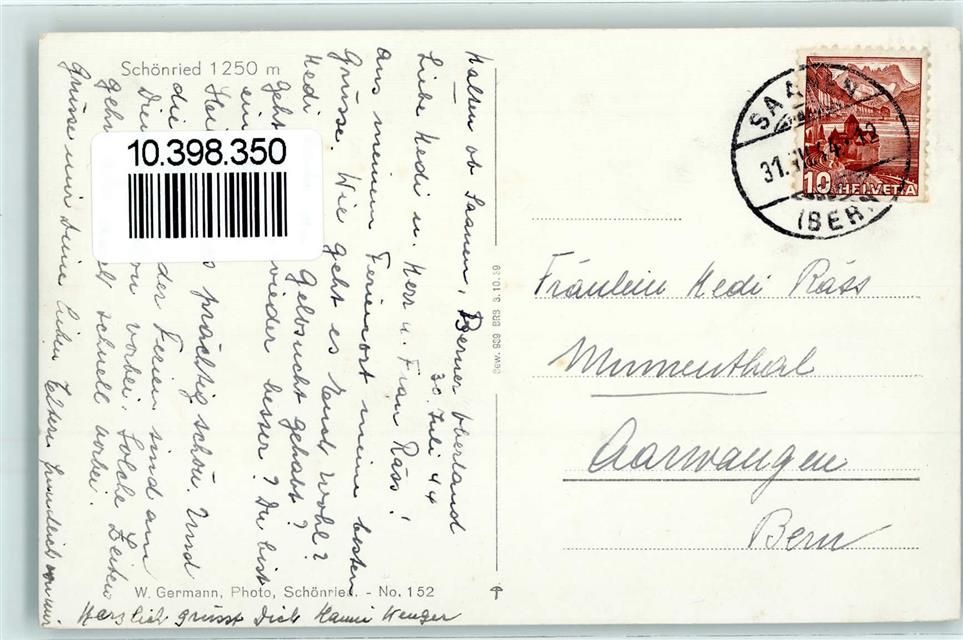 Schönried 1250 m
10.398.350
Kalten ob Saanen, Berner Oberland
30. Juli 44
Liebe Hedi u. Herr u. Frau Räss!
Aus meinem Ferienort meine besten
Grüsse. Wie geht es sonst wohl?
Hedi Gelbsucht gehabt?
Geht wieder besser? Du bist
ein
Hei s prächtig schön. Und
die der Ferien sind am
Die on vorbei. Solche Zeiten
gehn lt schnell vorbei.
Grüsse mir Deine lieben Eltern herzlich von mir
Herzlich grüsst Dich Hanni Wenger
W. Germann, Photo, Schönried. - No. 152
Bew. 909 BRB 3.10.39
SAANEN
31.VII.44 12
(BERN)
10 HELVETIA
Fräulein Hedi Räss
Mumenthal
Aarwangen
Bern